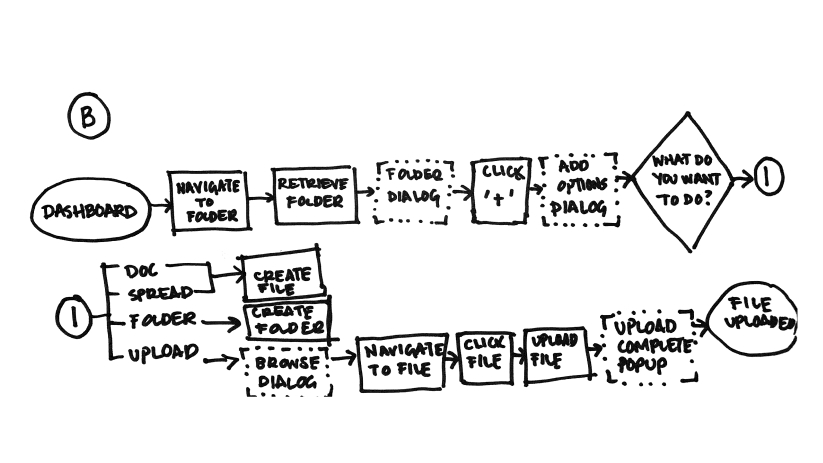 B
DASHBOARD
NAVIGATE
TO
FOLDER
RETRIEVE
FOLDER
FOLDER
DIALOG
CLICK
'+'
ADD
OPTIONS
DIALOG
WHAT DO
YOU WANT
TO DO?
1
1
DOC
SPREAD
CREATE
FILE
FOLDER
CREATE
FOLDER
UPLOAD
BROWSE
DIALOG
NAVIGATE
TO FILE
CLICK
FILE
UPLOAD
FILE
UPLOAD
COMPLETE
POPUP
FILE
UPLOADED